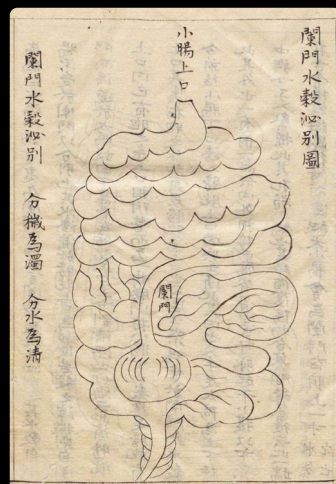 闌門水穀泌别圖
小腸上口
闌門
闌門水穀泌别 分穢為濁 分水為清